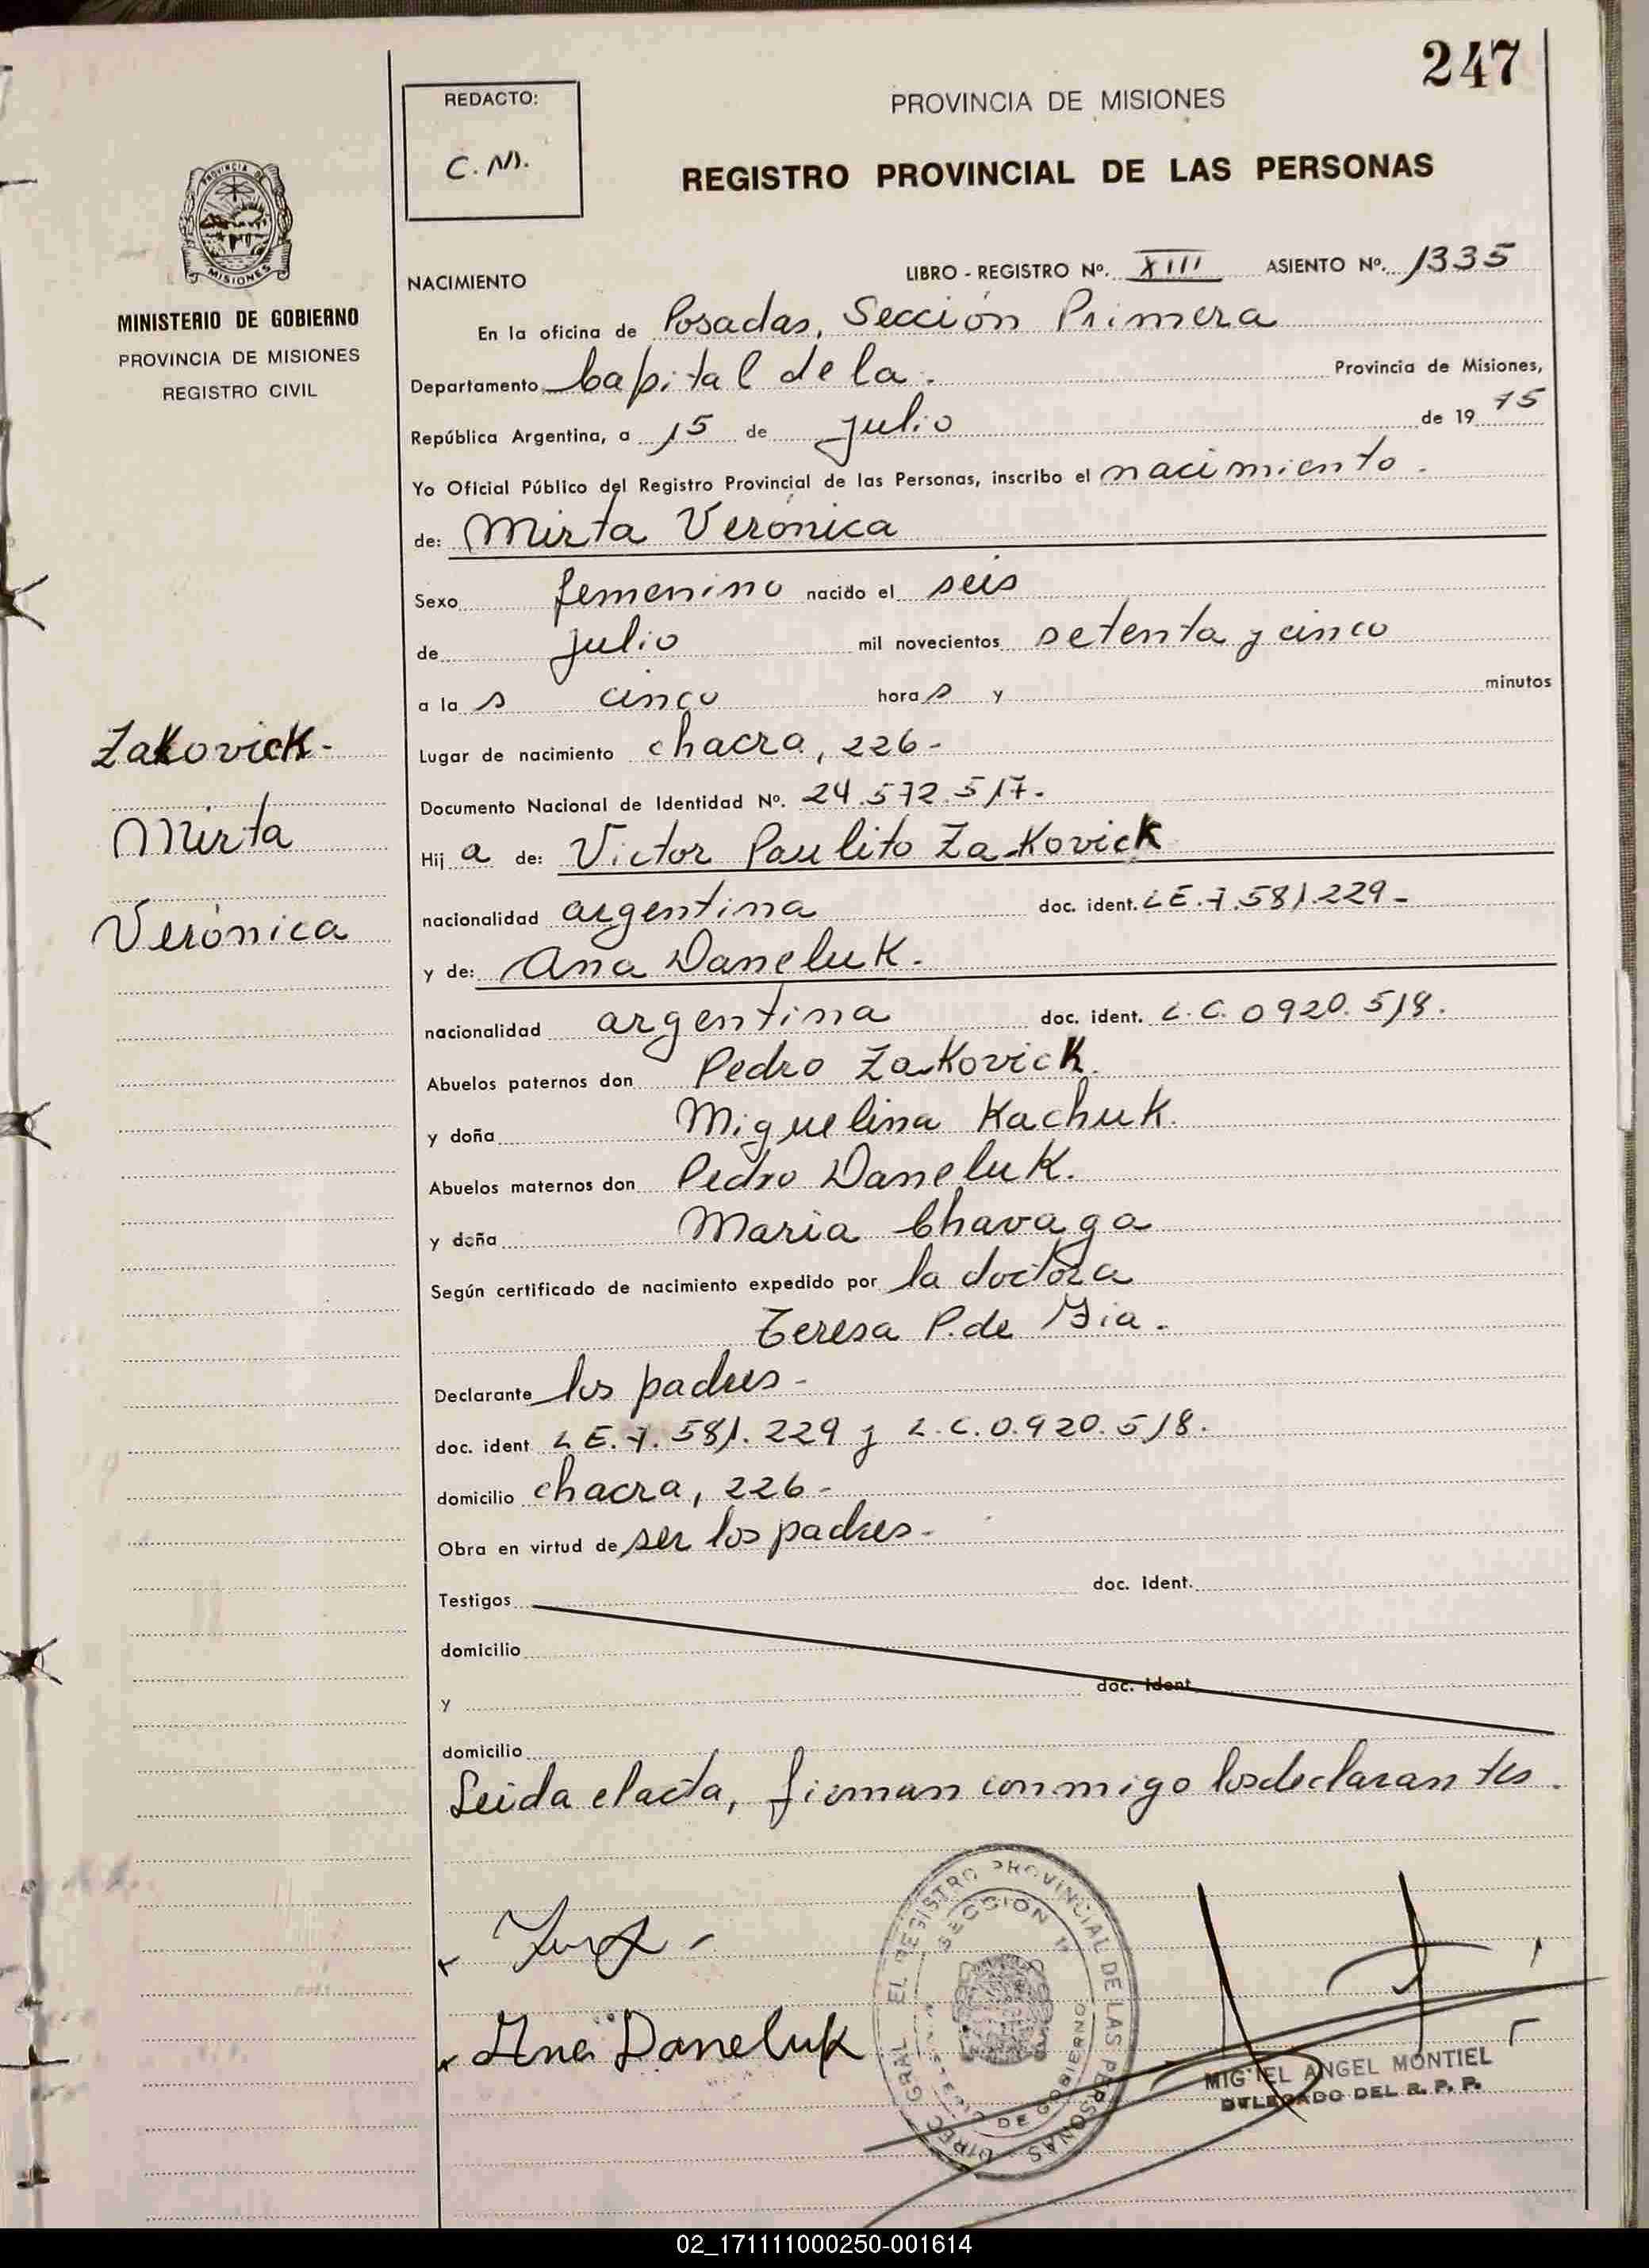 247
REDACTO:
C. M.
PROVINCIA DE MISIONES
REGISTRO PROVINCIAL DE LAS PERSONAS
PROVINCIA DE
MISIONES
MINISTERIO DE GOBIERNO
PROVINCIA DE MISIONES
REGISTRO CIVIL
Zakovick-
Mirta
Verónica
NACIMIENTO
LIBRO - REGISTRO Nº. XIII ASIENTO Nº. 1335
En la oficina de Posadas, Sección Primera
Departamento Capital de la. Provincia de Misiones,
República Argentina, a 15 de julio de 19 75
Yo Oficial Público del Registro Provincial de las Personas, inscribo el nacimiento.
de: Mirta Verónica
Sexo femenino nacido el seis
de julio mil novecientos setenta y cinco
a la s cinco hora s y minutos
Lugar de nacimiento chacra, 226-
Documento Nacional de Identidad Nº. 24.572.517.
Hij a de: Victor Paulito Zakovick
nacionalidad argentina doc. ident. LE.7.581.229-
y de: Ana Daneluk.
nacionalidad argentina doc. ident. L.C. 0920.518.
Abuelos paternos don Pedro Zakovick.
y doña Miguelina Kachuk.
Abuelos maternos don Pedro Daneluk.
y doña Maria Chavaga
Según certificado de nacimiento expedido por la doctora
Teresa P. de
Declarante los padres-
doc. ident LE.7.581.229 y L.C.0.920.518.
domicilio chacra, 226-
Obra en virtud de ser los padres-
Testigos doc. ident.
domicilio
y doc. ident
domicilio
Leida el acta, firman conmigo los declarantes.
Ana Daneluk
DIREC GRAL EL REGISTRO PROVINCIAL DE LAS PERSONAS
SECCION 1ª
DE GOBIERNO
MIGUEL ANGEL MONTIEL
DELEGADO DEL R. P. P.
02_171111000250-001614